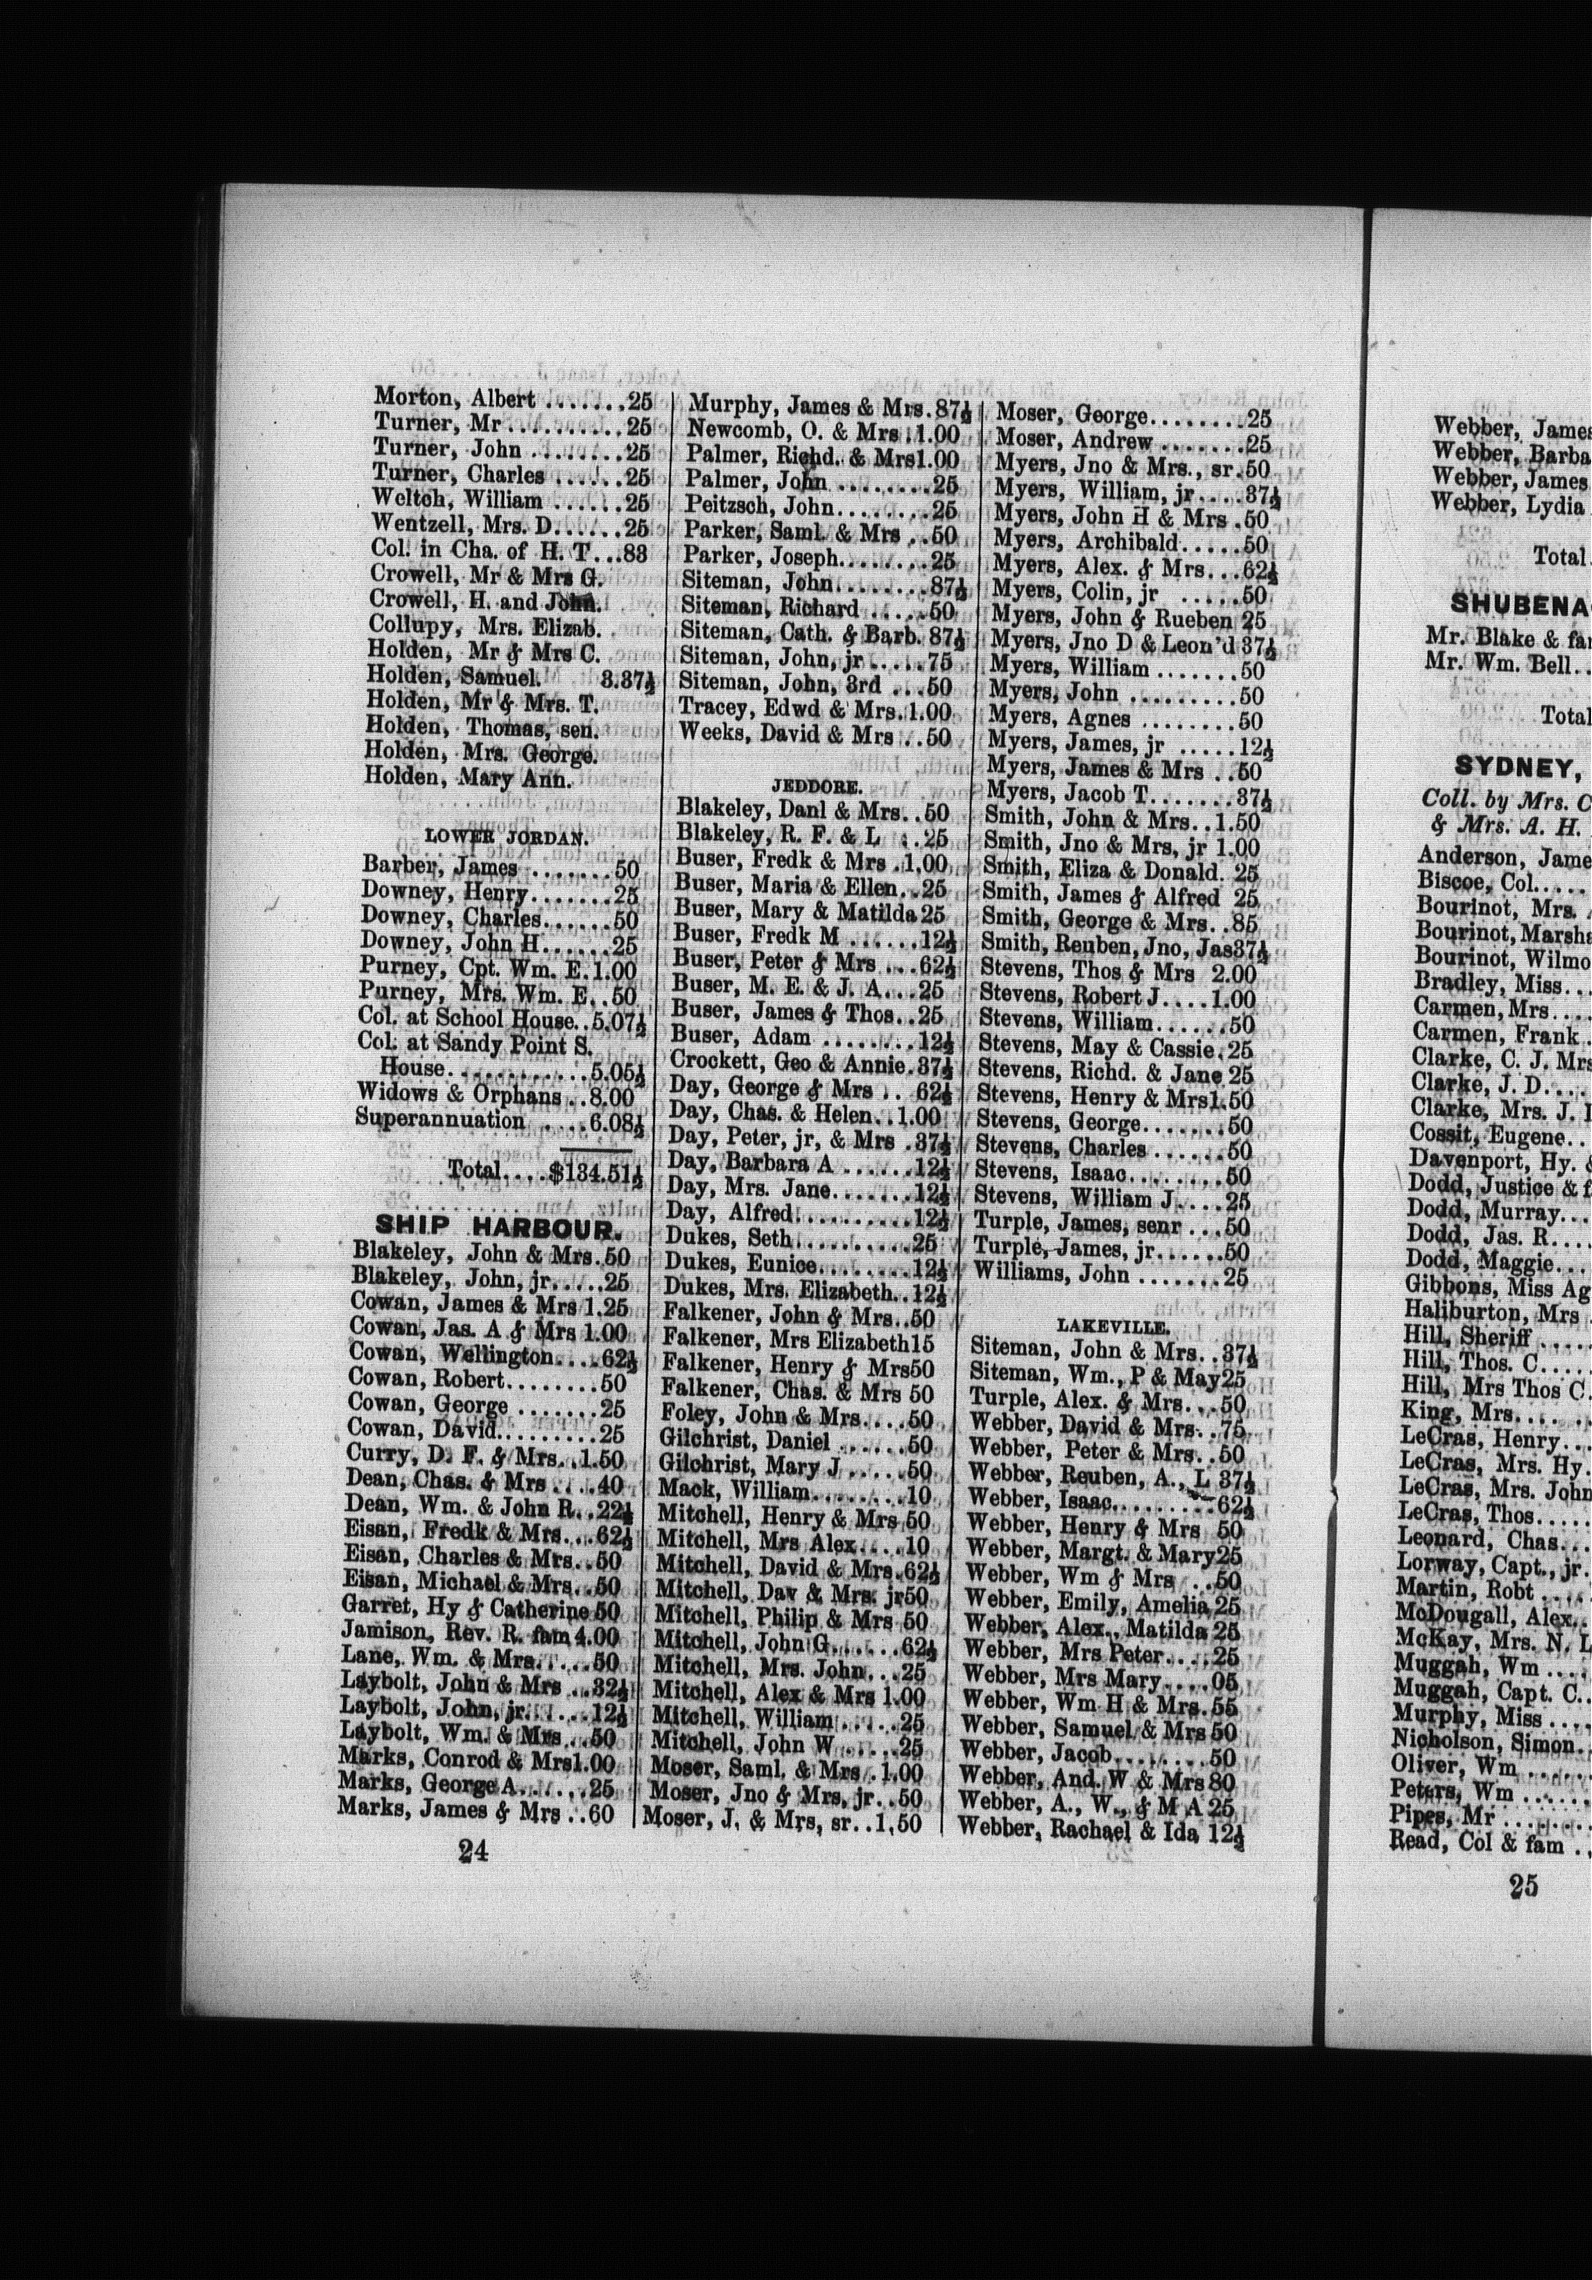 Morton, Albert .......25
Turner, Mr ..........25
Turner, John ........25
Turner, Charles ......25
Weltch, William ......25
Wentzell, Mrs. D......25
Col. in Cha. of H. T...83
Crowell, Mr & Mrs G.
Crowell, H. and John.
Collupy, Mrs. Elizab.
Holden, Mr & Mrs C.
Holden, Samuel. 3.37½
Holden, Mr & Mrs. T.
Holden, Thomas, sen.
Holden, Mrs. George.
Holden, Mary Ann.
LOWER JORDAN.
Barber, James ........50
Downey, Henry.......25
Downey, Charles......50
Downey, John H......25
Purney, Cpt. Wm. E.1.00
Purney, Mrs. Wm. E..50
Col. at School House..5.07½
Col. at Sandy Point S.
House............5.05½
Widows & Orphans ..8.00
Superannuation ....6.08½
Total....$134.51½
SHIP HARBOUR.
Blakeley, John & Mrs.50
Blakeley, John, jr.....25
Cowan, James & Mrs 1.25
Cowan, Jas. A & Mrs 1.00
Cowan, Wellington....62½
Cowan, Robert........50
Cowan, George .......25
Cowan, David.........25
Curry, D. F. & Mrs. .1.50
Dean, Chas. & Mrs ....40
Dean, Wm. & John R..22½
Eisan, Fredk & Mrs...62½
Eisan, Charles & Mrs..50
Eisan, Michael & Mrs..50
Garret, Hy & Catherine 50
Jamison, Rev. R. fam 4.00
Lane, Wm. & Mrs.....50
Laybolt, John & Mrs ..32½
Laybolt, John, jr......12½
Laybolt, Wm. & Mrs..50
Marks, Conrod & Mrs1.00
Marks, George A......25
Marks, James & Mrs ..60
24
Murphy, James & Mrs.87½
Newcomb, O. & Mrs .1.00
Palmer, Richd. & Mrs1.00
Palmer, John .........25
Peitzsch, John........25
Parker, Saml. & Mrs ..50
Parker, Joseph........25
Siteman, John........87½
Siteman, Richard .....50
Siteman, Cath. & Barb. 87½
Siteman, John, jr .....75
Siteman, John, 3rd ...50
Tracey, Edwd & Mrs.1.00
Weeks, David & Mrs ..50
JEDDORE.
Blakeley, Danl & Mrs..50
Blakeley, R. F. & L ..25
Buser, Fredk & Mrs .1.00
Buser, Maria & Ellen..25
Buser, Mary & Matilda25
Buser, Fredk M ......12½
Buser, Peter & Mrs ...62½
Buser, M. E. & J. A...25
Buser, James & Thos..25
Buser, Adam ........12½
Crockett, Geo & Annie.37½
Day, George & Mrs .. 62½
Day, Chas. & Helen..1.00
Day, Peter, jr, & Mrs .37½
Day, Barbara A ......12½
Day, Mrs. Jane.......12½
Day, Alfred..........12½
Dukes, Seth..........25
Dukes, Eunice........12½
Dukes, Mrs. Elizabeth..12½
Falkener, John & Mrs..50
Falkener, Mrs Elizabeth15
Falkener, Henry & Mrs50
Falkener, Chas. & Mrs 50
Foley, John & Mrs....50
Gilchrist, Daniel ......50
Gilchrist, Mary J .....50
Mack, William........10
Mitchell, Henry & Mrs 50
Mitchell, Mrs Alex....10
Mitchell, David & Mrs.62½
Mitchell, Dav & Mrs. jr50
Mitchell, Philip & Mrs 50
Mitchell, John G......62½
Mitchell, Mrs. John...25
Mitchell, Alex & Mrs 1.00
Mitchell, William .....25
Mitchell, John W .....25
Moser, Saml. & Mrs .1.00
Moser, Jno & Mrs, jr..50
Moser, J. & Mrs, sr..1.50
Moser, George........25
Moser, Andrew .......25
Myers, Jno & Mrs., sr.50
Myers, William, jr....37½
Myers, John H & Mrs .50
Myers, Archibald.....50
Myers, Alex. & Mrs...62½
Myers, Colin, jr .....50
Myers, John & Rueben 25
Myers, Jno D & Leon'd 37½
Myers, William .......50
Myers, John .........50
Myers, Agnes ........50
Myers, James, jr .....12½
Myers, James & Mrs ..50
Myers, Jacob T.......37½
Smith, John & Mrs..1.50
Smith, Jno & Mrs, jr 1.00
Smith, Eliza & Donald. 25
Smith, James & Alfred 25
Smith, George & Mrs..85
Smith, Reuben, Jno, Jas37½
Stevens, Thos & Mrs 2.00
Stevens, Robert J....1.00
Stevens, William......50
Stevens, May & Cassie.25
Stevens, Richd. & Jane 25
Stevens, Henry & Mrs1.50
Stevens, George.......50
Stevens, Charles ......50
Stevens, Isaac.........50
Stevens, William J....25
Turple, James, senr ...50
Turple, James, jr......50
Williams, John .......25
LAKEVILLE.
Siteman, John & Mrs..37½
Siteman, Wm., P & May25
Turple, Alex. & Mrs...50
Webber, David & Mrs..75
Webber, Peter & Mrs..50
Webber, Reuben, A., L 37½
Webber, Isaac.........62½
Webber, Henry & Mrs 50
Webber, Margt. & Mary25
Webber, Wm & Mrs ..50
Webber, Emily, Amelia 25
Webber, Alex., Matilda 25
Webber, Mrs Peter....25
Webber, Mrs Mary.....05
Webber, Wm H & Mrs.55
Webber, Samuel & Mrs 50
Webber, Jacob........50
Webber, And. W & Mrs80
Webber, A., W., & M A 25
Webber, Rachael & Ida 12½
Webber, James
Webber, Barba
Webber, James
Webber, Lydia
Total.
SHUBENA
Mr. Blake & fam
Mr. Wm. Bell..
Total
SYDNEY,
Coll. by Mrs. C
& Mrs. A. H.
Anderson, Jame
Biscoe, Col.....
Bourinot, Mrs.
Bourinot, Marsha
Bourinot, Wilmo
Bradley, Miss...
Carmen, Mrs....
Carmen, Frank.
Clarke, C. J. Mrs
Clarke, J. D....
Clarke, Mrs. J.
Cossit, Eugene..
Davenport, Hy. &
Dodd, Justice & f
Dodd, Murray...
Dodd, Jas. R....
Dodd, Maggie...
Gibbons, Miss Ag
Haliburton, Mrs .
Hill, Sheriff ....
Hill, Thos. C....
Hill, Mrs Thos C.
King, Mrs.... ..
LeCras, Henry...
LeCras, Mrs. Hy.
LeCras, Mrs. John
LeCras, Thos.....
Leonard, Chas...
Lorway, Capt., jr.
Martin, Robt ....
McDougall, Alex..
McKay, Mrs. N. L
Muggah, Wm ....
Muggah, Capt. C..
Murphy, Miss ....
Nicholson, Simon..
Oliver, Wm ......
Peters, Wm ......
Pipes, Mr ........
Read, Col & fam ..
25